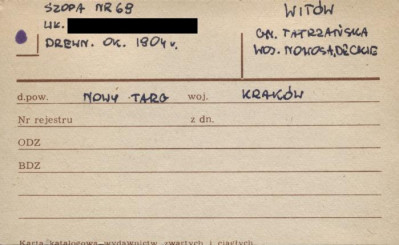 SZOPA NR 69
WŁ.
DREWN. OK. 1904 r.
WITÓW
GM. TATRZAŃSKA
WOJ. NOWOSĄDECKIE
d.pow. NOWY TARG woj. KRAKÓW
Nr rejestru z dn.
ODZ
BDZ
Karta katalogowa wydawnictw zwartych i ciągłych.